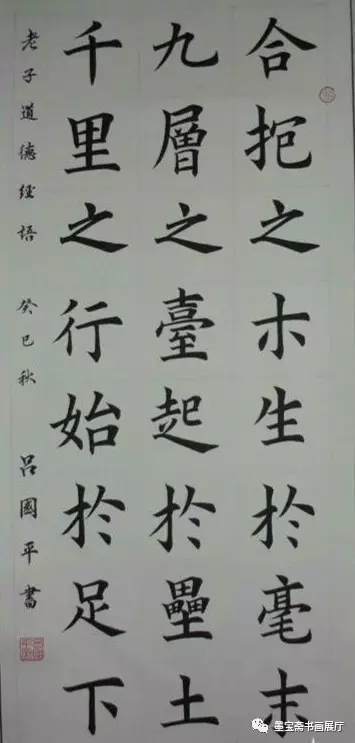 合抱之木生於毫末
九層之臺起於壘土
千里之行始於足下
老子道德經語 癸巳秋 吕國平書
墨宝斋书画展厅